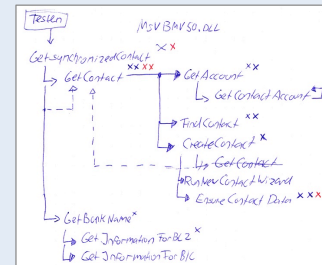 Testen
MSVBMV50.DLL
GetSynchronizedContact x x
GetContact x x x x
GetAccount x x
GetContactAccount
FindContact x x
CreateContact x
GetContact
RunNewContactWizard
Ensure Contact Data x x x
GetBankName x
Get Information For BLZ x
Get Information For BIC